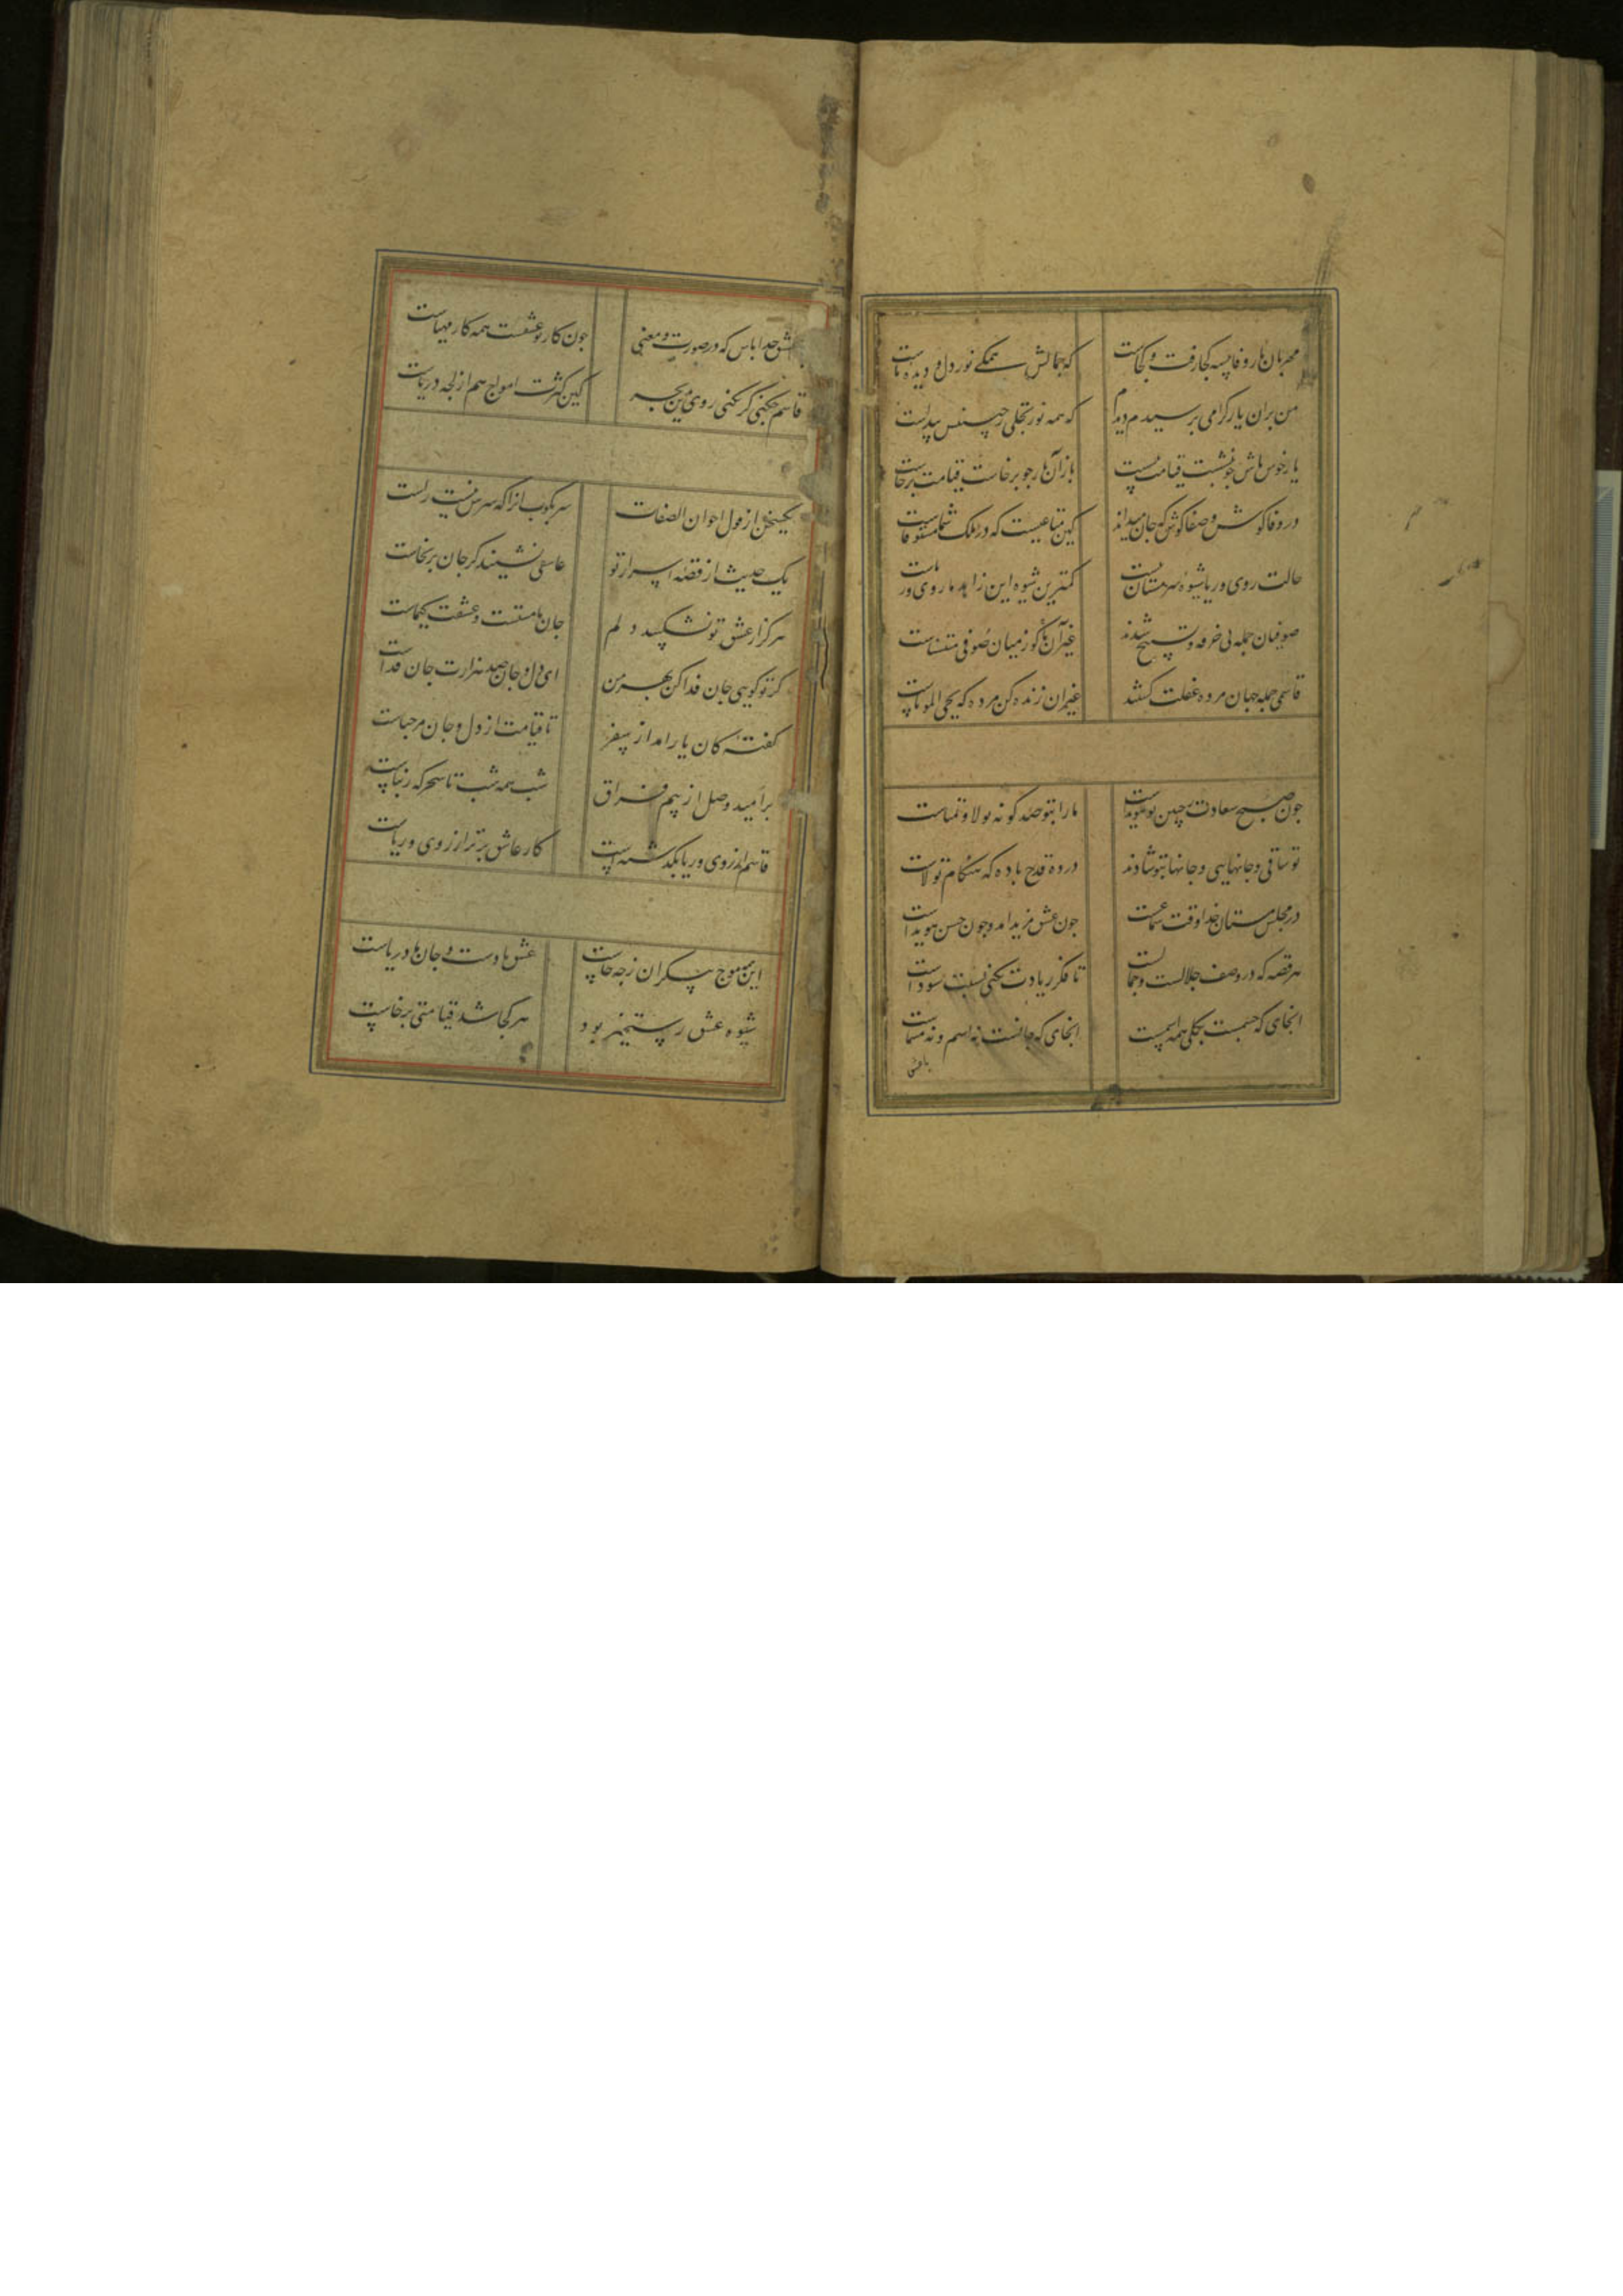 مهربان یار وفاپیسه کجا رفت و کجاست
که جمالش همکے نور دل و دیده ماست
من بران یار کرامی برسیدم دیدم
که همه نور تجلی زجبینش پیداست
یار خوش باش جو بنشست قیامت بنشست
باز آن یار جو برخاست قیامت برخاست
در وفا کوش و صفا کوش که جان میداند
کین متاعیست که در ملک شما مستوفاست
حالت روی و ریا شیوه سرمستان نیست
کمترین شیوه این زاهد ما روی و ریاست
صوفیان جمله پی خرقه و تسبیح شدند
غیر آن کو ز میان صوفی مستثناست
قاسمی جمله جهان مرده غفلت کشتند
غیر ان زنده کن مرده که یحیی الموتاست
جون صبح سعادت ز جبین تو هویداست
مارا بتو صد کونه تولا و تمناست
تو ساقی و جانهایی و جانها بتو شادند
در ده قدح باده که هنکام تولاست
در مجلس مستان خدا وقت سماعست
جون عشق مزید امد و جون حسن هویداست
هر قصه که در وصف جلالست و جمالست
تا فکر زیادت نکنی نسبت سوداست
انجای که جسمست بکلی همه اسمست
انجای که جانست نه اسم و نه مسماست
باعشق
خدا باش که در صورت و معنی
جون کار تو عشقست همه کار مهیاست
قاسم جکنی کر نکنی روی بدین بحر
کین کثرت امواج هم از لجه دریاست
یکسخن از قول اخوان الصفات
سر بکوب انرا که سرش نیست راست
یک حدیث از قصه اسرار تو
عاشقی ننشیند کر جان برنخاست
هرکز از عشق تو نشکیبد دلم
جان ما مستست و عشقت کیمیاست
کر تو کویی جان فدا کن بهر من
ای دل و جان صد هزارت جان فداست
کفته کان یار امد از سفر
تا قیامت از دل و جان مرحباست
بر امید وصل از بیم فراق
شب همه شب تا سحرکه ربناست
قاسم از روی و ریا بکذشته است
کار عاشق برتر از روی و ریاست
این موج بیکران زجه خاست
عشق بادست و جان ما دریاست
شیوه عشق رستخیز بود
هر کجا شد قیامتی برخاست